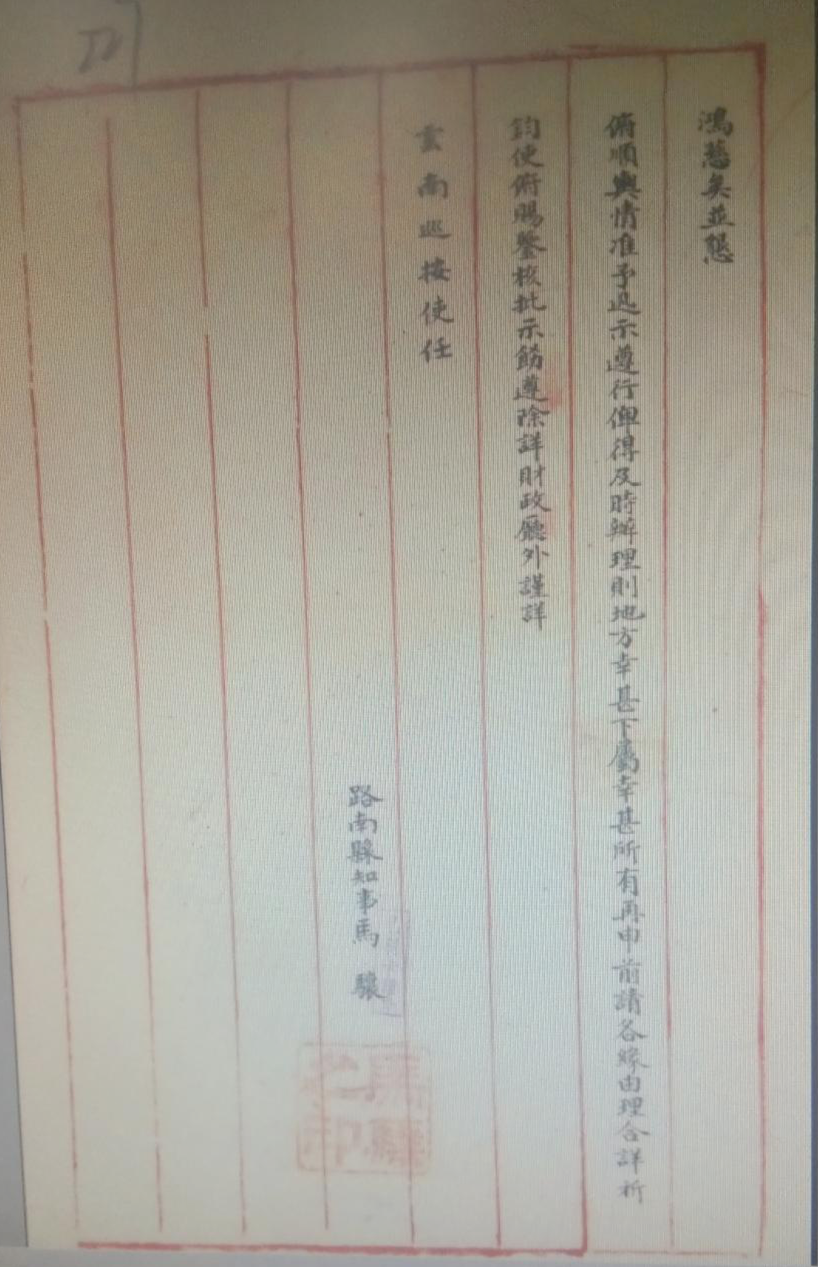 鴻慈矣並懇
俯順輿情准予迅示遵行俾得及時辦理則地方幸甚下屬幸甚所有再申前請各緣由理合詳祈
鈞使俯賜鑒核批示飭遵除詳財政廳外謹詳
雲南巡按使任
路南縣知事馬驤
馬驤之印